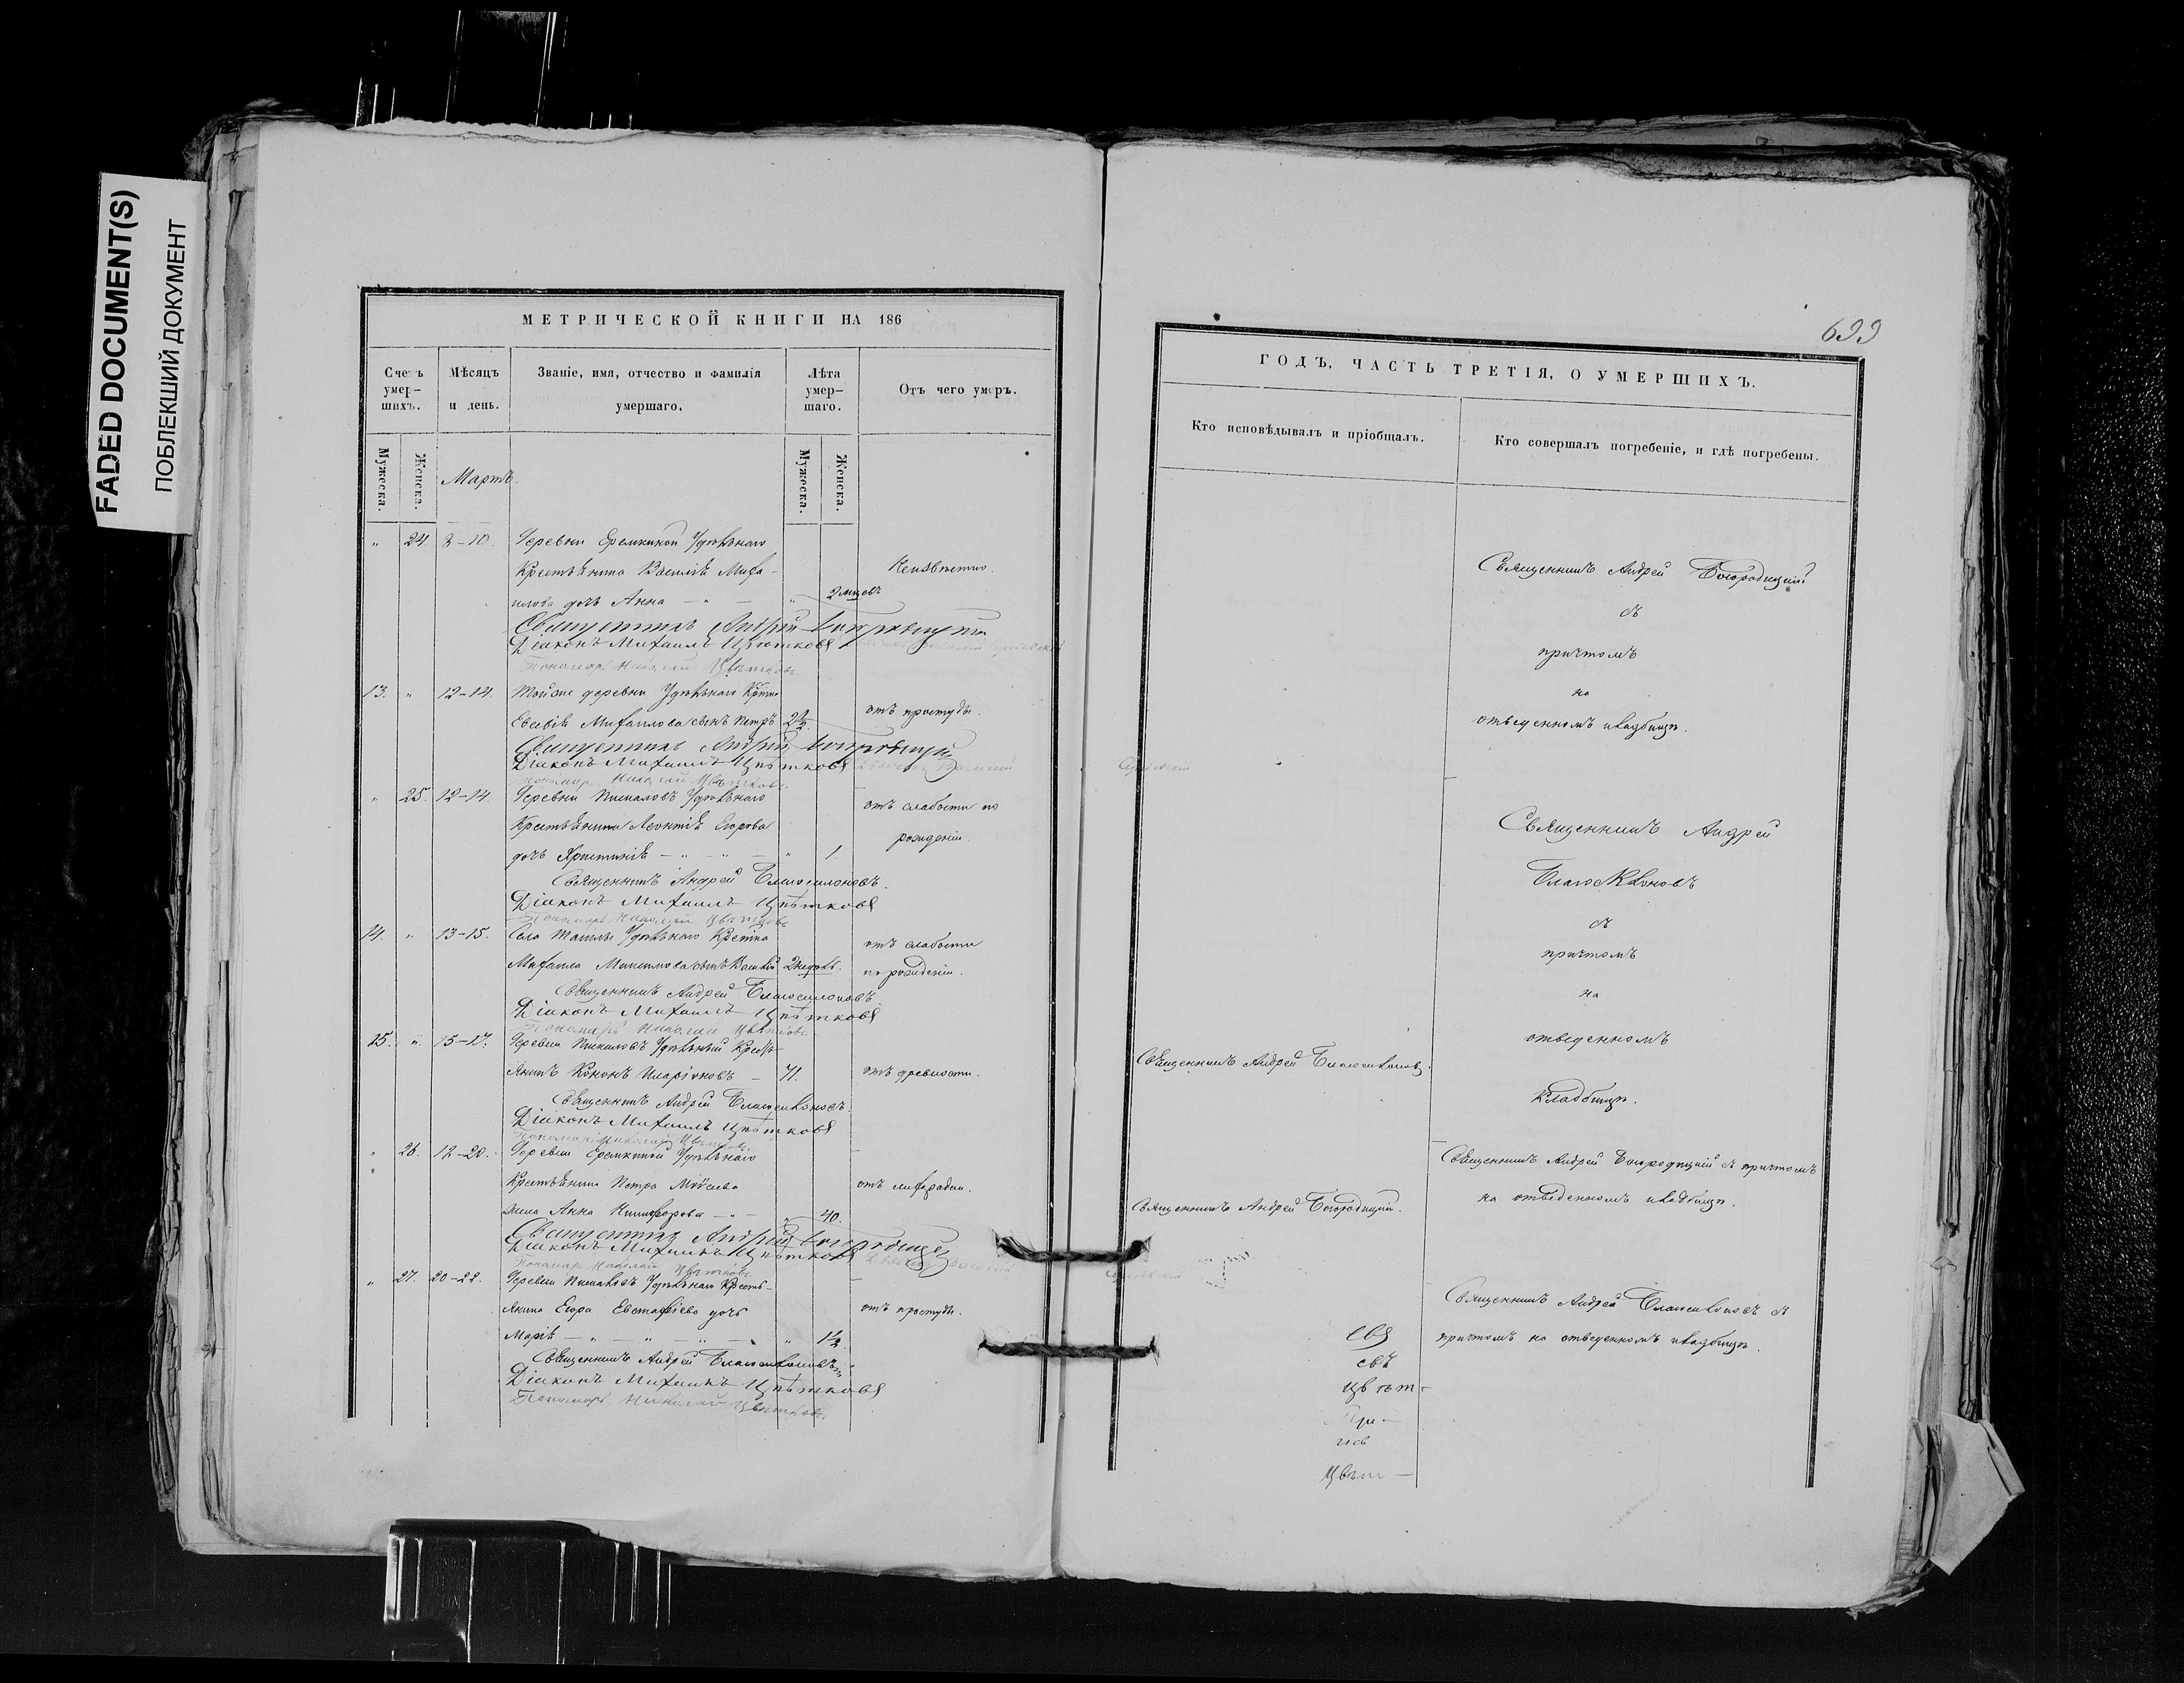 FADED DOCUMENT(S)
ПОБЛЕКШИЙ ДОКУМЕНТ
МЕТРИЧЕСКОЙ КНИГИ НА 186
Счетъ умер-шихъ.
Мѣсяцъ и день.
Званіе, имя, отчество и фамилія умершаго.
Лѣта умер-шаго.
Отъ чего умеръ.
Мужеска.
Женска.
Мартъ.
Мужеска.
Женска.
" 24 8-10. Деревни Еремкиной Удѣльнаго
Крестьянина Василія Миха-
Неизвѣстно.
илова дочь Анна — " — " 2 мцевъ
Священникъ Андрей Богородицкій
Діаконъ Михаилъ Цвѣтковъ
Пономарь Николай Цвѣтковъ
13. " 12-14. Той же деревни Удѣльнаго Крѣтна
отъ простуды.
Евсевія Михаилова сынъ Петръ 2½
Священникъ Андрей Богородицкій
Діаконъ Михаилъ Цвѣтковъ
Пономарь Николай Цвѣтковъ.
" 25. 12-14. Деревни Удѣльнаго
отъ слабости по
Крестьянина Леонтія Егорова
рожденіи.
дочь Христинія — " — " — " 1.
Священникъ Андрей Благосклоновъ.
Діаконъ Михаилъ Цвѣтковъ
Пономарь Николай Цвѣтковъ
14. " 13-15. Села Удѣльнаго Крѣстна
отъ слабости
Михаила Максимова сынъ Василій 2 недѣль.
по рожденіи.
Священникъ Андрей Благосклоновъ
Діаконъ Михаилъ Цвѣтковъ
Пономарь Николай Цвѣтковъ
15. " 15-17. Деревни Удѣльный Кресть-
янинъ Кононъ Иларіоновъ — 71.
отъ древности.
Священникъ Андрей Благосклоновъ.
Діаконъ Михаилъ Цвѣтковъ
Пономарь Николай Цвѣтковъ
" 26. Деревни Еремкиной Удѣльнаго
Крестьянина Петра Мовсіева
отъ лихорадки.
жена Анна Никифорова — " — " 40.
Священникъ Андрей Богородицкій
Діаконъ Михаилъ Цвѣтковъ
Пономарь Николай Цвѣтковъ
" 27. 20-22. Деревни Удѣльнаго Кресть-
янина Егора Евстафіева дочь
отъ простуды.
Марія — " — " — " — " 1½
Священникъ Андрей Благосклоновъ
Діаконъ Михаилъ Цвѣтковъ
Пономарь Николай Цвѣтковъ.
699
ГОДЪ, ЧАСТЬ ТРЕТІЯ, О УМЕРШИХЪ.
Кто исповѣдывалъ и пріобщалъ.
Кто совершалъ погребеніе, и гдѣ погребены.
Священникъ Андрей Богородицкій
съ
причтомъ
на
отведенномъ кладбищѣ.
Священникъ Андрей
Благосклоновъ
съ
причтомъ
на
отведенномъ
Священникъ Андрей Благосклоновъ.
Кладбищѣ.
Священникъ Андрей Богородицкій съ причтомъ
на отведенномъ кладбищѣ.
Священникъ Андрей Богородицкій.
Священникъ Андрей Благосклоновъ съ
причтомъ на отведенномъ кладбищѣ.
свъ
Цвѣт-
Цвѣт —